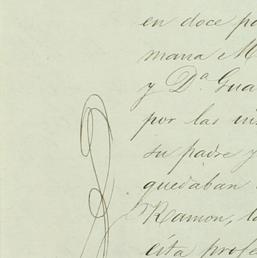 en doce
mana M
y D.ª Gua
por las
su padre y
quedaban
Ramon, l
ésta prof